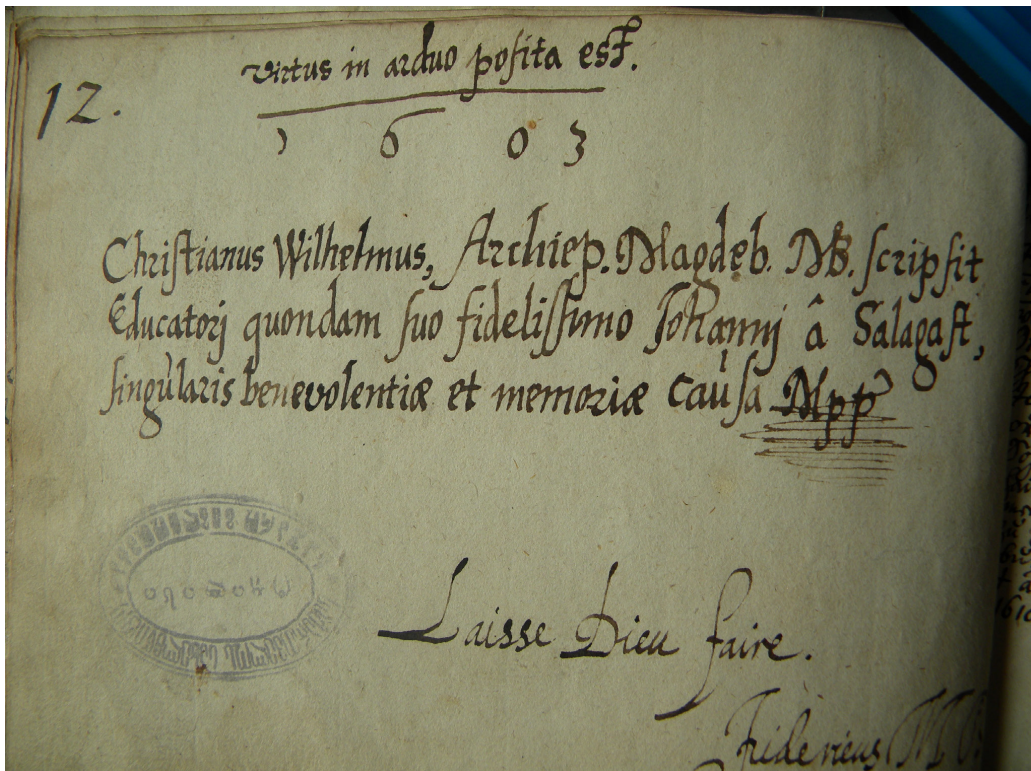 Virtus in arduo posita est.
12.
1 6 0 3
Christianus Wilhelmus, Archiep. Magdeb. MB. scripsit
Educatorj quondam suo fidelissimo Johannj â Salagast,
singularis benevolentiæ et memoriæ causa Mpp
Laisse Dieu faire.
Fridericus